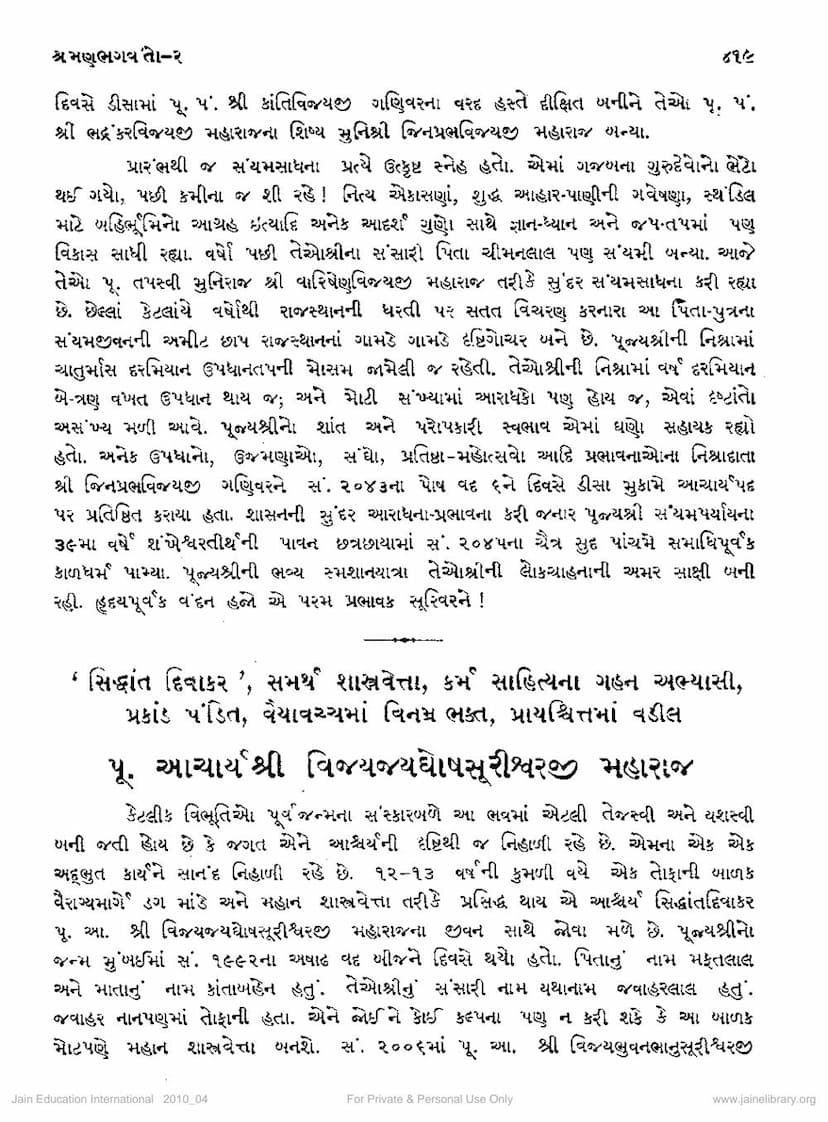 શ્રમણભગવંતો–૨
૪૧૯
દિવસે ડીસામાં પૂ. પં. શ્રી કાંતિવિજયજી ગણિવરના વરદ હસ્તે દીક્ષિત બનીને તેઓ પૂ. પં.
શ્રી ભદ્રંકરવિજયજી મહારાજના શિષ્ય મુનિશ્રી જિનપ્રભવિજયજી મહારાજ બન્યા.
પ્રારંભથી જ સંયમસાધના પ્રત્યે ઉત્કૃષ્ટ સ્નેહ હતો. એમાં ગજબના ગુરુદેવોનો ભેટો
થઈ ગયો, પછી કમીના જ શી રહે! નિત્ય એકાસણાં, શુદ્ધ આહાર-પાણીની ગવેષણા, સ્થંડિલ
માટે બહિર્ભૂમિનો આગ્રહ ઇત્યાદિ અનેક આદર્શ ગુણો સાથે જ્ઞાન-ધ્યાન અને જપ-તપમાં પણ
વિકાસ સાધી રહ્યા. વર્ષો પછી તેઓશ્રીના સંસારી પિતા ચીમનલાલ પણ સંયમી બન્યા. આજે
તેઓ પૂ. તપસ્વી મુનિરાજ શ્રી વારિષેણવિજયજી મહારાજ તરીકે સુંદર સંયમસાધના કરી રહ્યા
છે. છેલ્લાં કેટલાંયે વર્ષોથી રાજસ્થાનની ધરતી પર સતત વિચરણ કરનારા આ પિતા-પુત્રના
સંયમજીવનની અમીટ છાપ રાજસ્થાનનાં ગામડે ગામડે દૃષ્ટિગોચર બને છે. પૂજ્યશ્રીની નિશ્રામાં
ચાતુર્માસ દરમિયાન ઉપધાનતપની મોસમ જામેલી જ રહેતી. તેઓશ્રીની નિશ્રામાં વર્ષ દરમિયાન
બે-ત્રણ વખત ઉપધાન થાય જ; અને મોટી સંખ્યામાં આરાધકો પણ હોય જ, એવાં દૃષ્ટાંતો
અસંખ્ય મળી આવે. પૂજ્યશ્રીનો શાંત અને પરોપકારી સ્વભાવ એમાં ઘણો સહાયક રહ્યો
હતો. અનેક ઉપધાનો, ઉજમણાઓ, સંઘો, પ્રતિષ્ઠા-મહોત્સવો આદિ પ્રભાવનાઓના નિશ્રાદાતા
શ્રી જિનપ્રભવિજયજી ગણિવરને સં. ૨૦૪૩ના પોષ વદ ૬ને દિવસે ડીસા મુકામે આચાર્યપદ
પર પ્રતિષ્ઠિત કરાયા હતા. શાસનની સુંદર આરાધના-પ્રભાવના કરી જનાર પૂજ્યશ્રી સંયમપર્યાયના
૩૯મા વર્ષે શંખેશ્વરતીર્થની પાવન છત્રછાયામાં સં. ૨૦૪૫ના ચૈત્ર સુદ પાંચમે સમાધિપૂર્વક
કાળધર્મ પામ્યા. પૂજ્યશ્રીની ભવ્ય સ્મશાનયાત્રા તેઓશ્રીની લોકચાહનાની અમર સાક્ષી બની
રહી. હૃદયપૂર્વક વંદન હજો એ પરમ પ્રભાવક સૂરિવરને !
‘ સિદ્ધાંત દિવાકર ’, સમર્થ શાસ્ત્રવેત્તા, કર્મ સાહિત્યના ગહન અભ્યાસી,
પ્રકાંડ પંડિત, વૈયાવચ્ચમાં વિનમ્ર ભક્ત, પ્રાયશ્ચિત્તમાં વડીલ
પૂ. આચાર્યશ્રી વિજયજયઘોષસૂરીશ્વરજી મહારાજ
કેટલીક વિભૂતિઓ પૂર્વજન્મના સંસ્કારબળે આ ભવમાં એટલી તેજસ્વી અને યશસ્વી
બની જતી હોય છે કે જગત એને આશ્ચર્યની દૃષ્ટિથી જ નિહાળી રહે છે. એમના એક એક
અદ્ભુત કાર્યને સાનંદ નિહાળી રહે છે. ૧૨-૧૩ વર્ષની કુમળી વયે એક તોફાની બાળક
વૈરાગ્યમાર્ગે ડગ માંડે અને મહાન શાસ્ત્રવેત્તા તરીકે પ્રસિદ્ધ થાય એ આશ્ચર્ય સિદ્ધાંતદિવાકર
પૂ. આ. શ્રી વિજયજયઘોષસૂરીશ્વરજી મહારાજના જીવન સાથે જોવા મળે છે. પૂજ્યશ્રીનો
જન્મ મુંબઈમાં સં. ૧૯૯૨ના અષાઢ વદ બીજને દિવસે થયો હતો. પિતાનું નામ મફતલાલ
અને માતાનું નામ કાંતાબહેન હતું. તેઓશ્રીનું સંસારી નામ યથાનામ જવાહરલાલ હતું.
જવાહર નાનપણમાં તોફાની હતા. એને જોઈને કોઈ કલ્પના પણ ન કરી શકે કે આ બાળક
મોટપણે મહાન શાસ્ત્રવેત્તા બનશે. સં. ૨૦૦૬માં પૂ. આ. શ્રી વિજયભુવનભાનુસૂરીશ્વરજી
Jain Education International 2010_04
For Private & Personal Use Only
www.jainelibrary.org